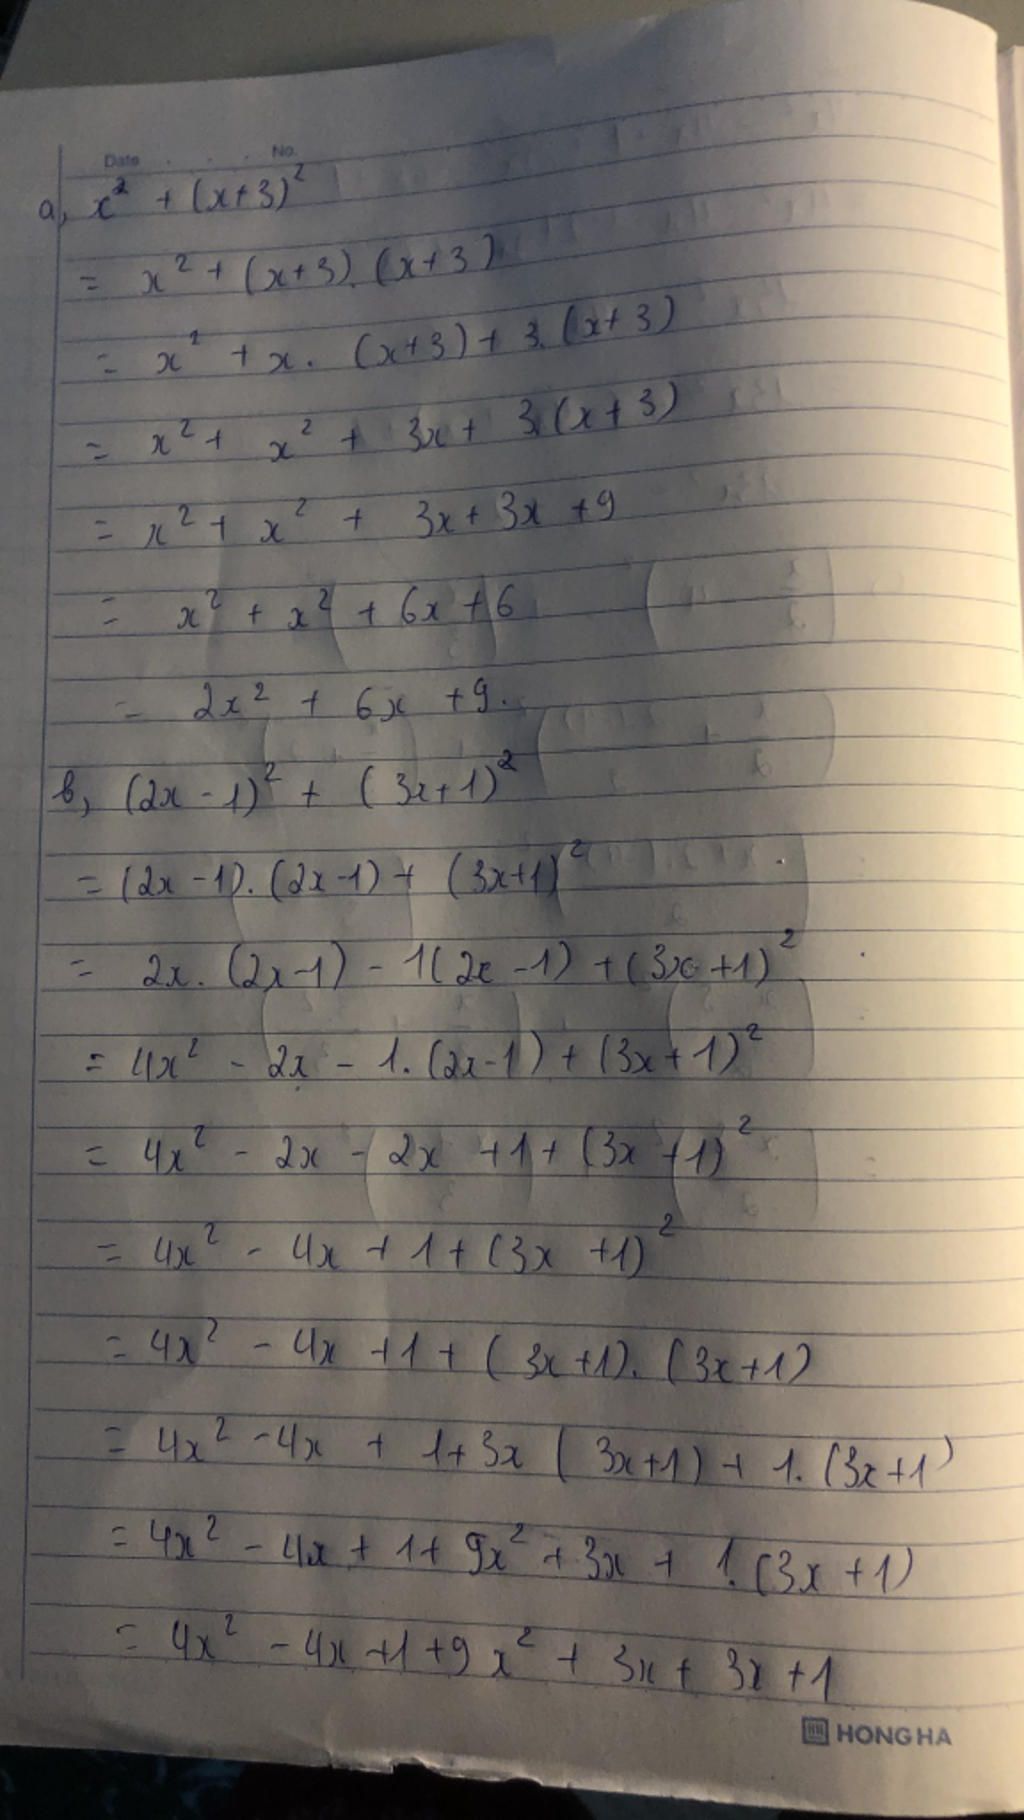 Date . . . No.
a, x² + (x+3)²
= x² + (x+3).(x+3)
= x² + x. (x+3) + 3.(x+3)
= x² + x² + 3x + 3.(x+3)
= x² + x² + 3x + 3x + 9
= x² + x² + 6x + 6
= 2x² + 6x + 9.
b, (2x - 1)² + (3x+1)²
= (2x - 1).(2x-1) + (3x+1)²
= 2x. (2x-1) - 1(2x - 1) + (3x + 1)²
= 4x² - 2x - 1.(2x-1) + (3x+1)²
= 4x² - 2x - 2x + 1 + (3x + 1)²
= 4x² - 4x + 1 + (3x + 1)²
= 4x² - 4x + 1 + (3x+1).(3x+1)
= 4x² - 4x + 1 + 3x (3x+1) + 1.(3x+1)
= 4x² - 4x + 1 + 9x² + 3x + 1.(3x + 1)
= 4x² - 4x + 1 + 9x² + 3x + 3x + 1
HONG HA